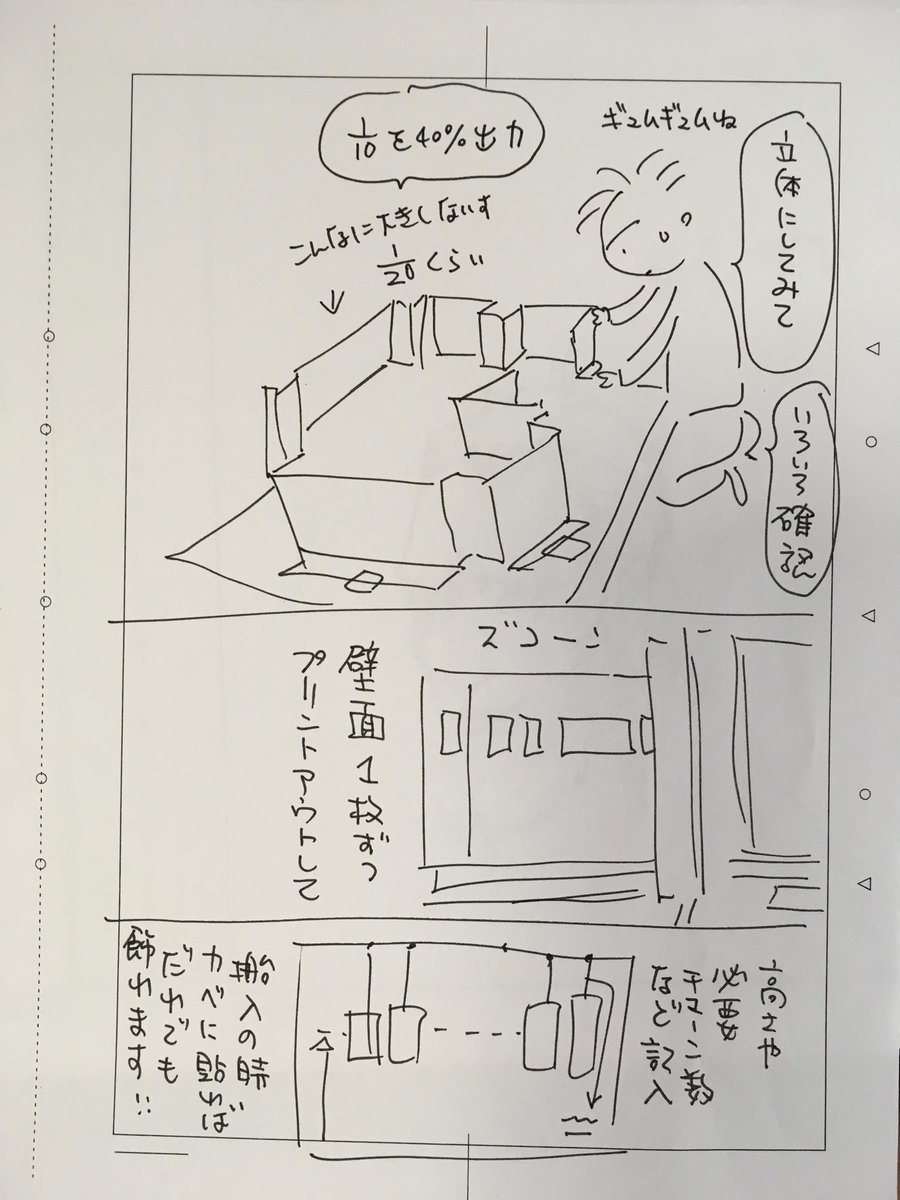 1/10を40%出力
ギュムギュムね
立体にしてみて
こんなに大きくないす
1/20くらい
いろいろ確認
ズコーン
壁面1枚ずつ
プリントアウトして
高さや
必要
チェーン数
など記入
搬入の時
カベに貼れば
だれでも
飾れます!!